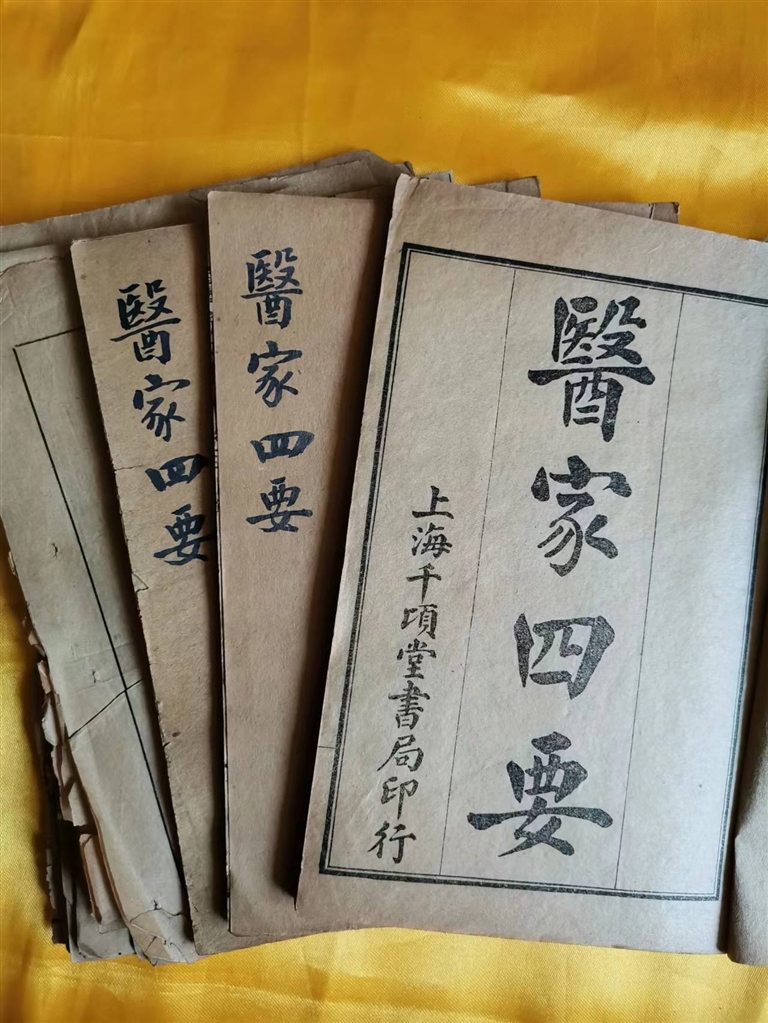 醫家四要
上海千頃堂書局印行
醫家四要
醫家四要